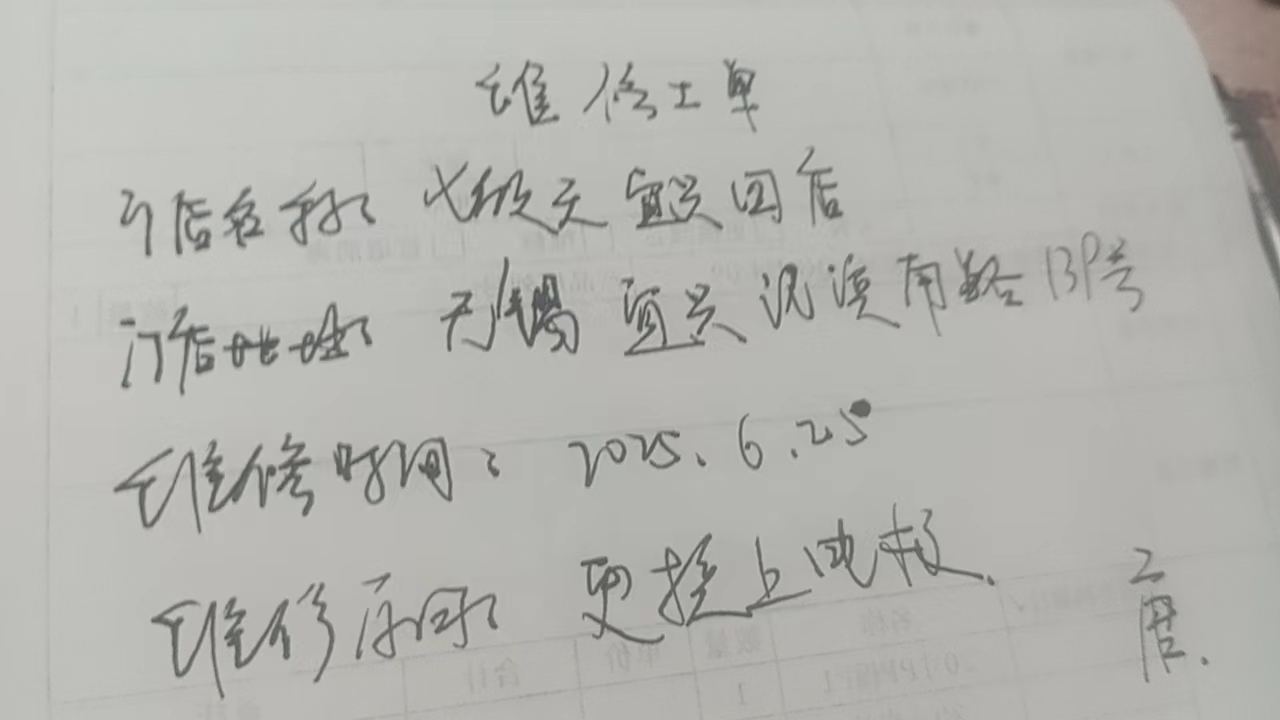 维修工单
门店名称: 天宜兴回店
门店地址: 无锡宜兴 南路139号
维修时间: 2025.6.25
维修原因: 更换上电极、
二唐.